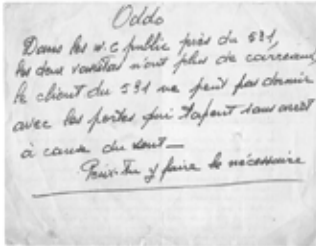 Oddo
Dans les w.c public près du 531,
les deux vasistas n'ont plus de carreaux,
le client du 531 ne peut pas dormir
avec les portes qui tapent sans arrêt
à cause du vent —
Peux-tu y faire le nécessaire